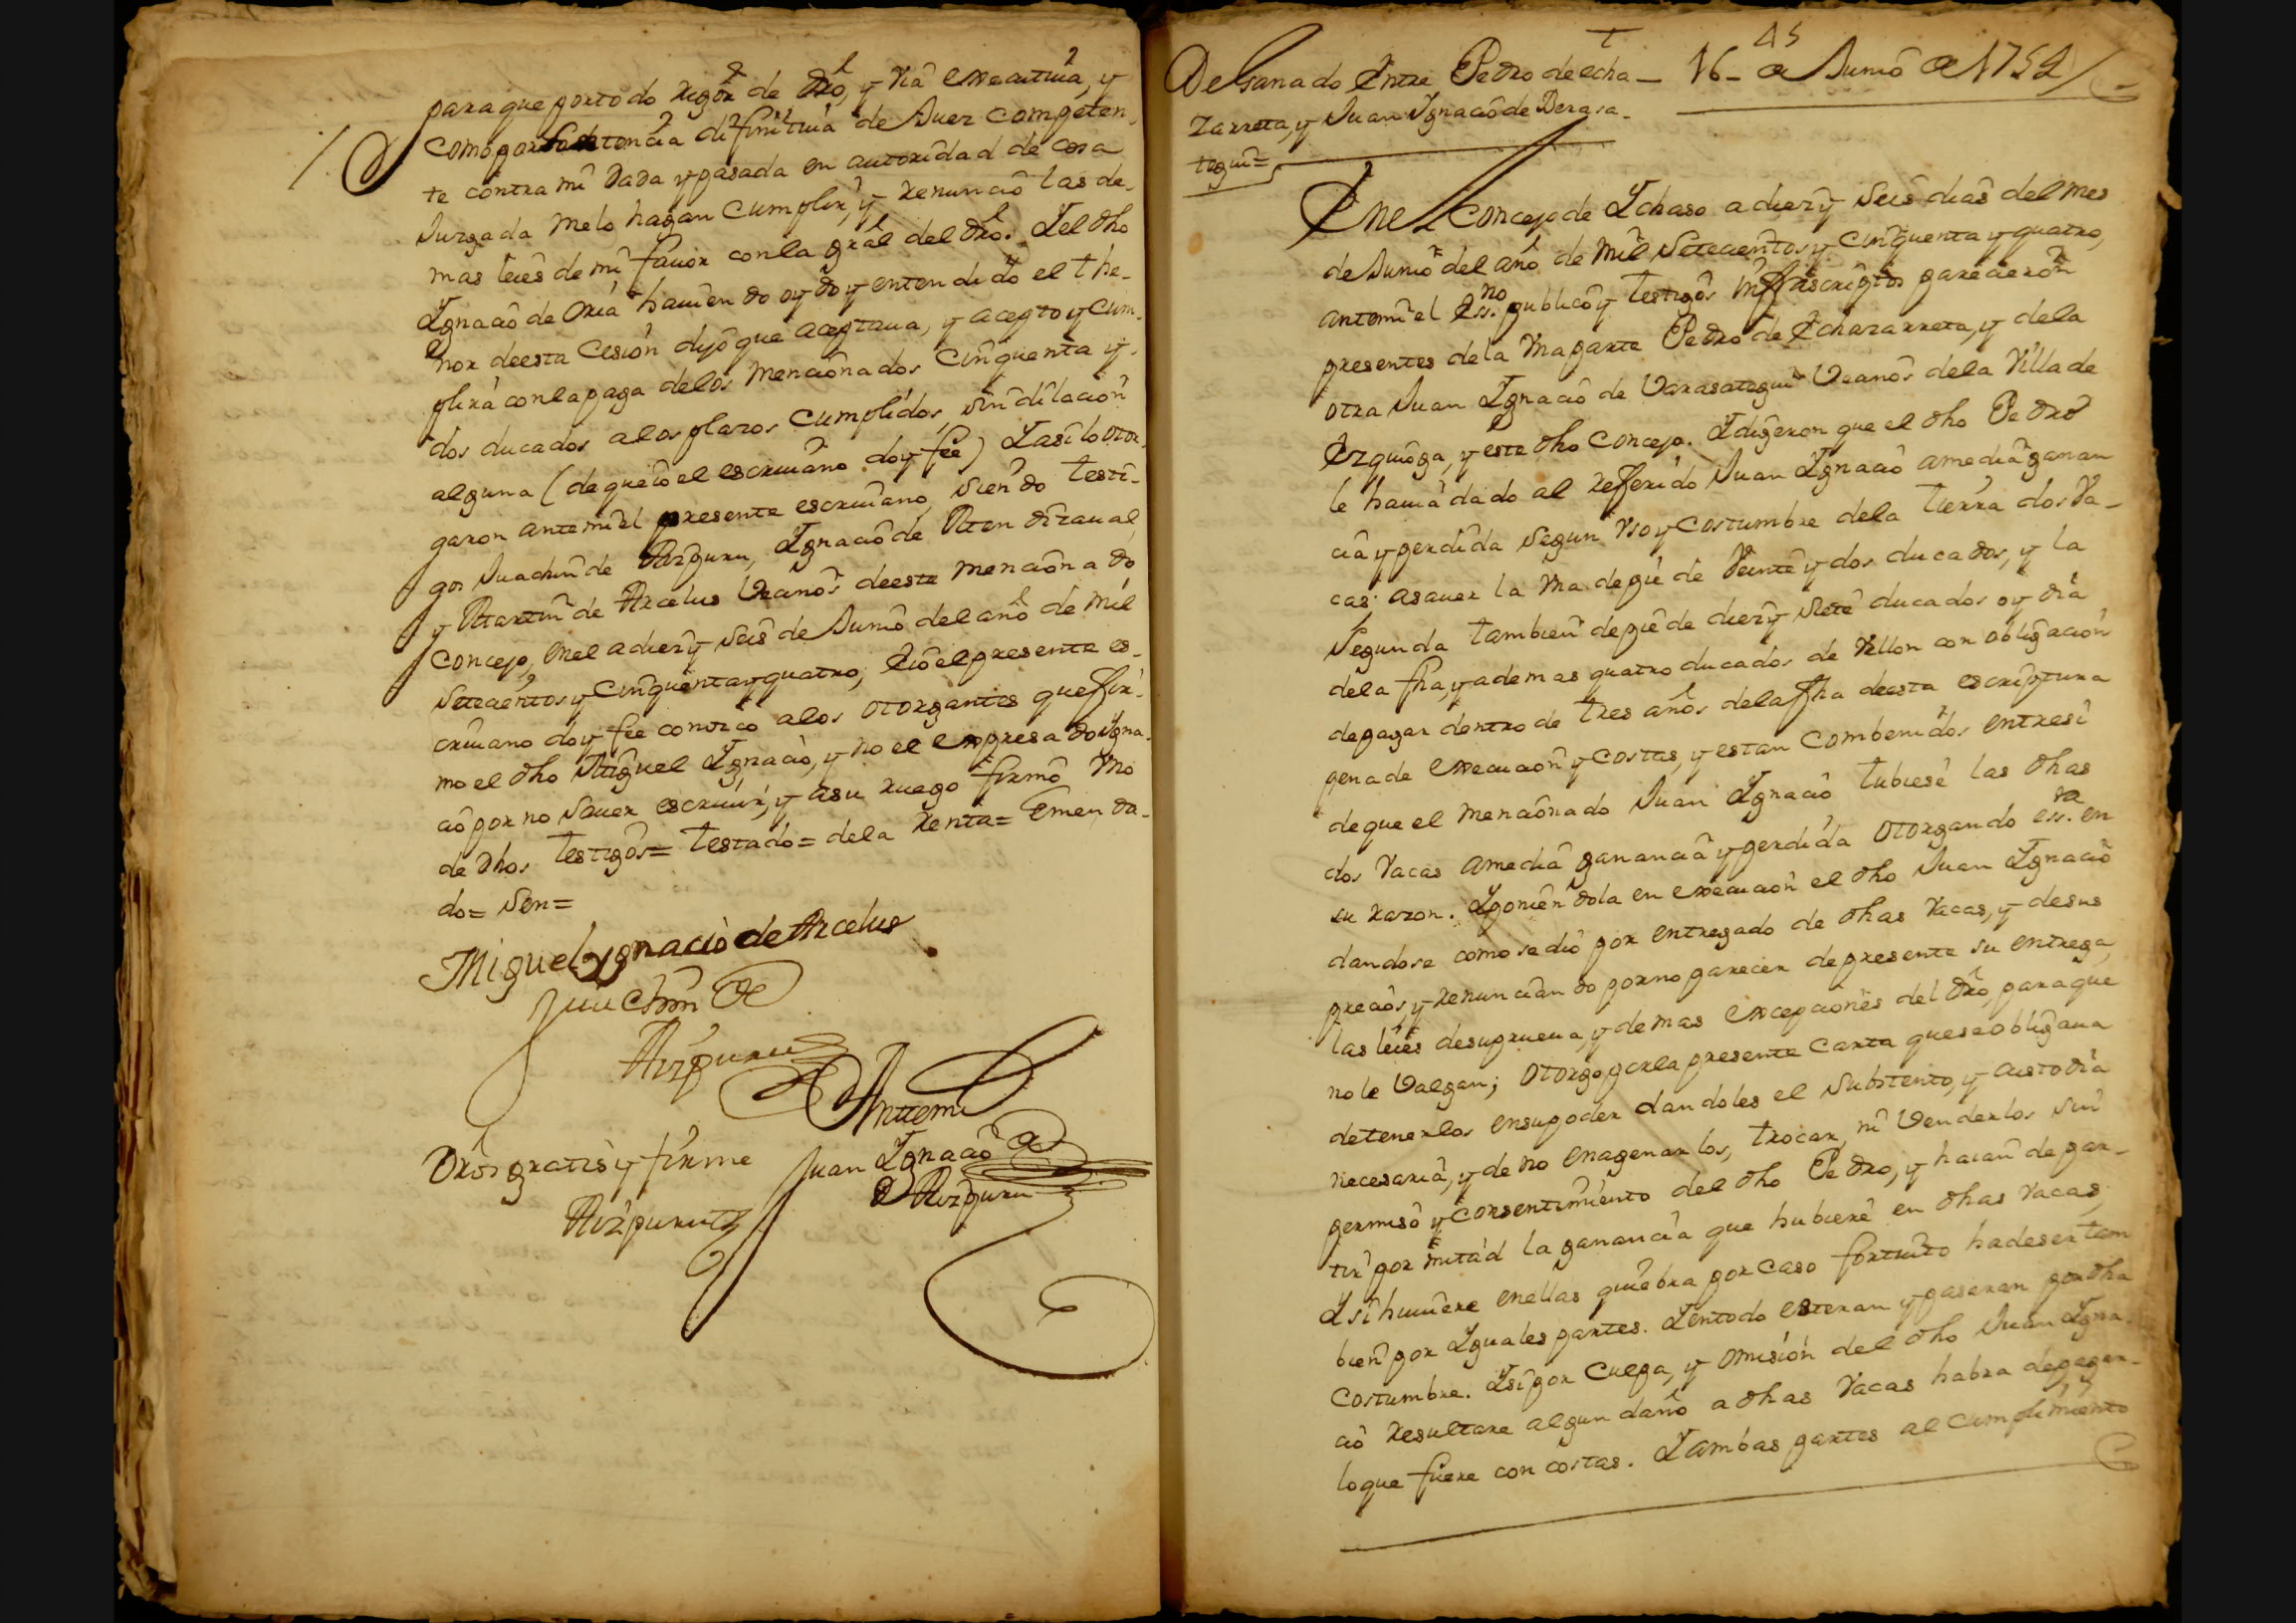 para que por todo rigor de dro, y via executiua, y
como por sentencia difinitiua de Juez competen-
te contra mi dada y pasada en autoridad de cosa
Juzgada melo hagan cumplir, y renunciô las de-
mas leies de mi fauor con la gral del dro. Y el dho
Ygnacio de Oria hauiendo oydo y entendido el the-
nor de esta Cesion dijo que aceptaua, y acepto y cum-
plira con la paga delos mencionados Cinquenta y
dos ducados alos plazos Cumplidos, sin dilacion
alguna (de que io el escriuano doy fee) Y asi lo otor-
garon ante mi el presente escriuano, siendo testi-
gos Juachin de Aizpuru, Ygnacio de
y Martin de Arcelus Vecinos de este mencionado
Concejo, en el a diez y seis de Junio del año de mil
setecientos y Cinquenta y quatro, e io el presente es-
criuano doy fee conozco alos otorgantes que fir-
mo el dho Miguel Ygnacio, y no el expresado Ygna-
cio por no sauer escriuir, y a su ruego firmô Vno
de dhos testigos= testado= dela renta= Emenda-
do= sen=
Miguel ygnacio de Arcelus
Juachin de
Aizpuru
Ante mi
Juan Ygnacio de
Aizpuru
Dros gratis y firme
Aizpuru
45
De Ganado Entre Pedro de echa- 16- de Junio de 1754
zarreta, y Juan Ygnacio de Berasa-
tegui=
En el Concejo de Ychaso a diez y seis dias del mes
de Junio del año de mil setecientos y cinquenta y quatro,
ante mi el Ess.no publico y testigos infrascriptos parecieron
presentes dela Vna parte Pedro de Echazarreta, y dela
otra Juan Ygnacio de Varasategui Vecinos dela Villa de
Ezquioga, y este dho Concejo. Y digeron que el dho Pedro
le hauia dado al referido Juan Ygnacio a media ganan
cia y perdida segun Vso y Costumbre dela tierra dos Va-
cas; asauer la Vna de pie de Veinte y dos ducados, y la
Segunda tambien de pie de diez y siete ducados oy dia
dela fha, y ademas quatro ducados de Vellon con obligacion
de pagar dentro de tres años dela fha de esta escriptura
pena de execucion y costas, y estan combenidos entre si
de que el mencionado Juan Ygnacio tubiese las dhas
dos Vacas a media ganancia y perdida otorgando ess.ra en
su razon. Y poniendola en execucion el dho Juan Ygnacio
dandose como se dio por entregado de dhas Vacas, y de sus
precios, y renunciando por no parecer de presente su entrega,
las leies de su prueua, y demas excepciones del dro, para que
no le Valgan; otorgo por la presente Carta que se obligaua
de tenerlos en su poder dandoles el substento, y custodia
necesaria, y de no enagenarlos, trocar, ni Venderlos sin
permiso y consentimiento del dho Pedro, y hauian de par-
tir por mitad la ganancia que hubiere en dhas Vacas;
Y si huuiere en ellas quiebra por caso fortuito ha de ser tam
bien por Yguales partes. Y en todo estaran y pasaran por dha
Costumbre. Y si por Culpa, y omision del dho Juan Ygna-
cio resultare algun daño a dhas Vacas habra de pagar-
lo que fuere con costas. Y ambas partes al Cumplimiento